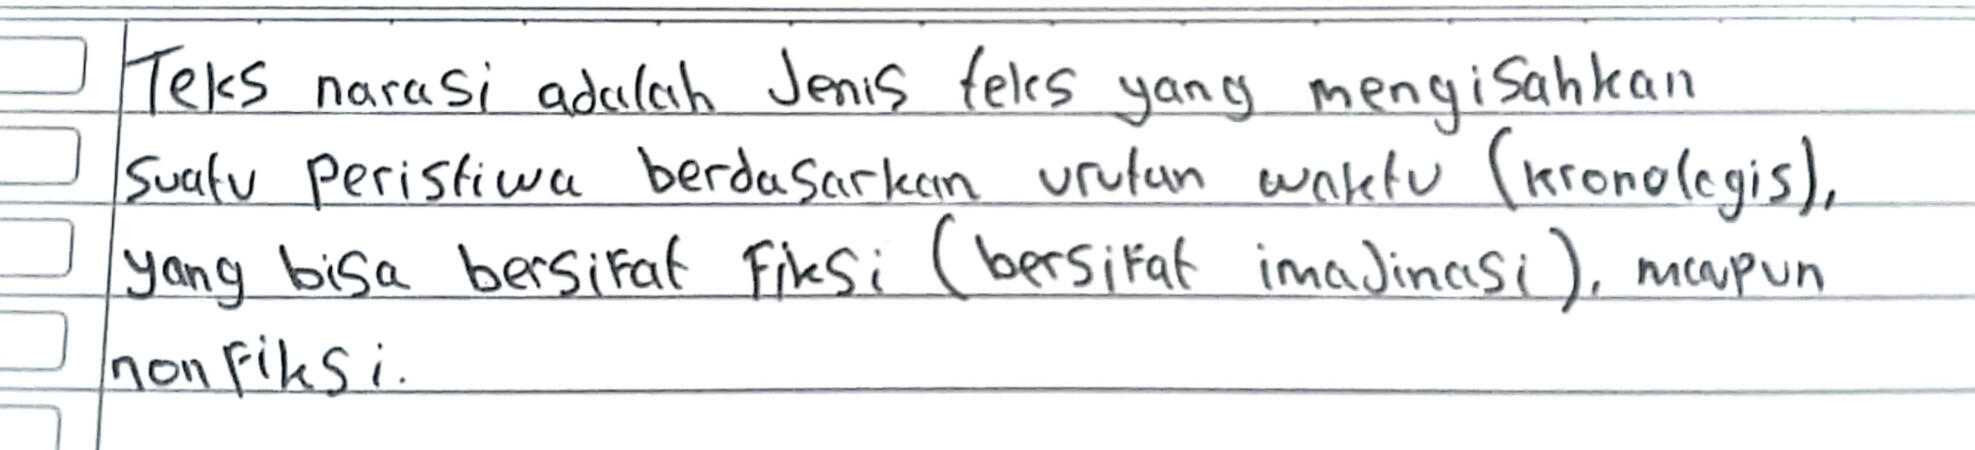 Teks narasi adalah Jenis teks yang mengisahkan
suatu peristiwa berdasarkan urutan waktu (kronologis),
yang bisa bersifat Fiksi (bersifat imaJinasi), maupun
nonFiksi.